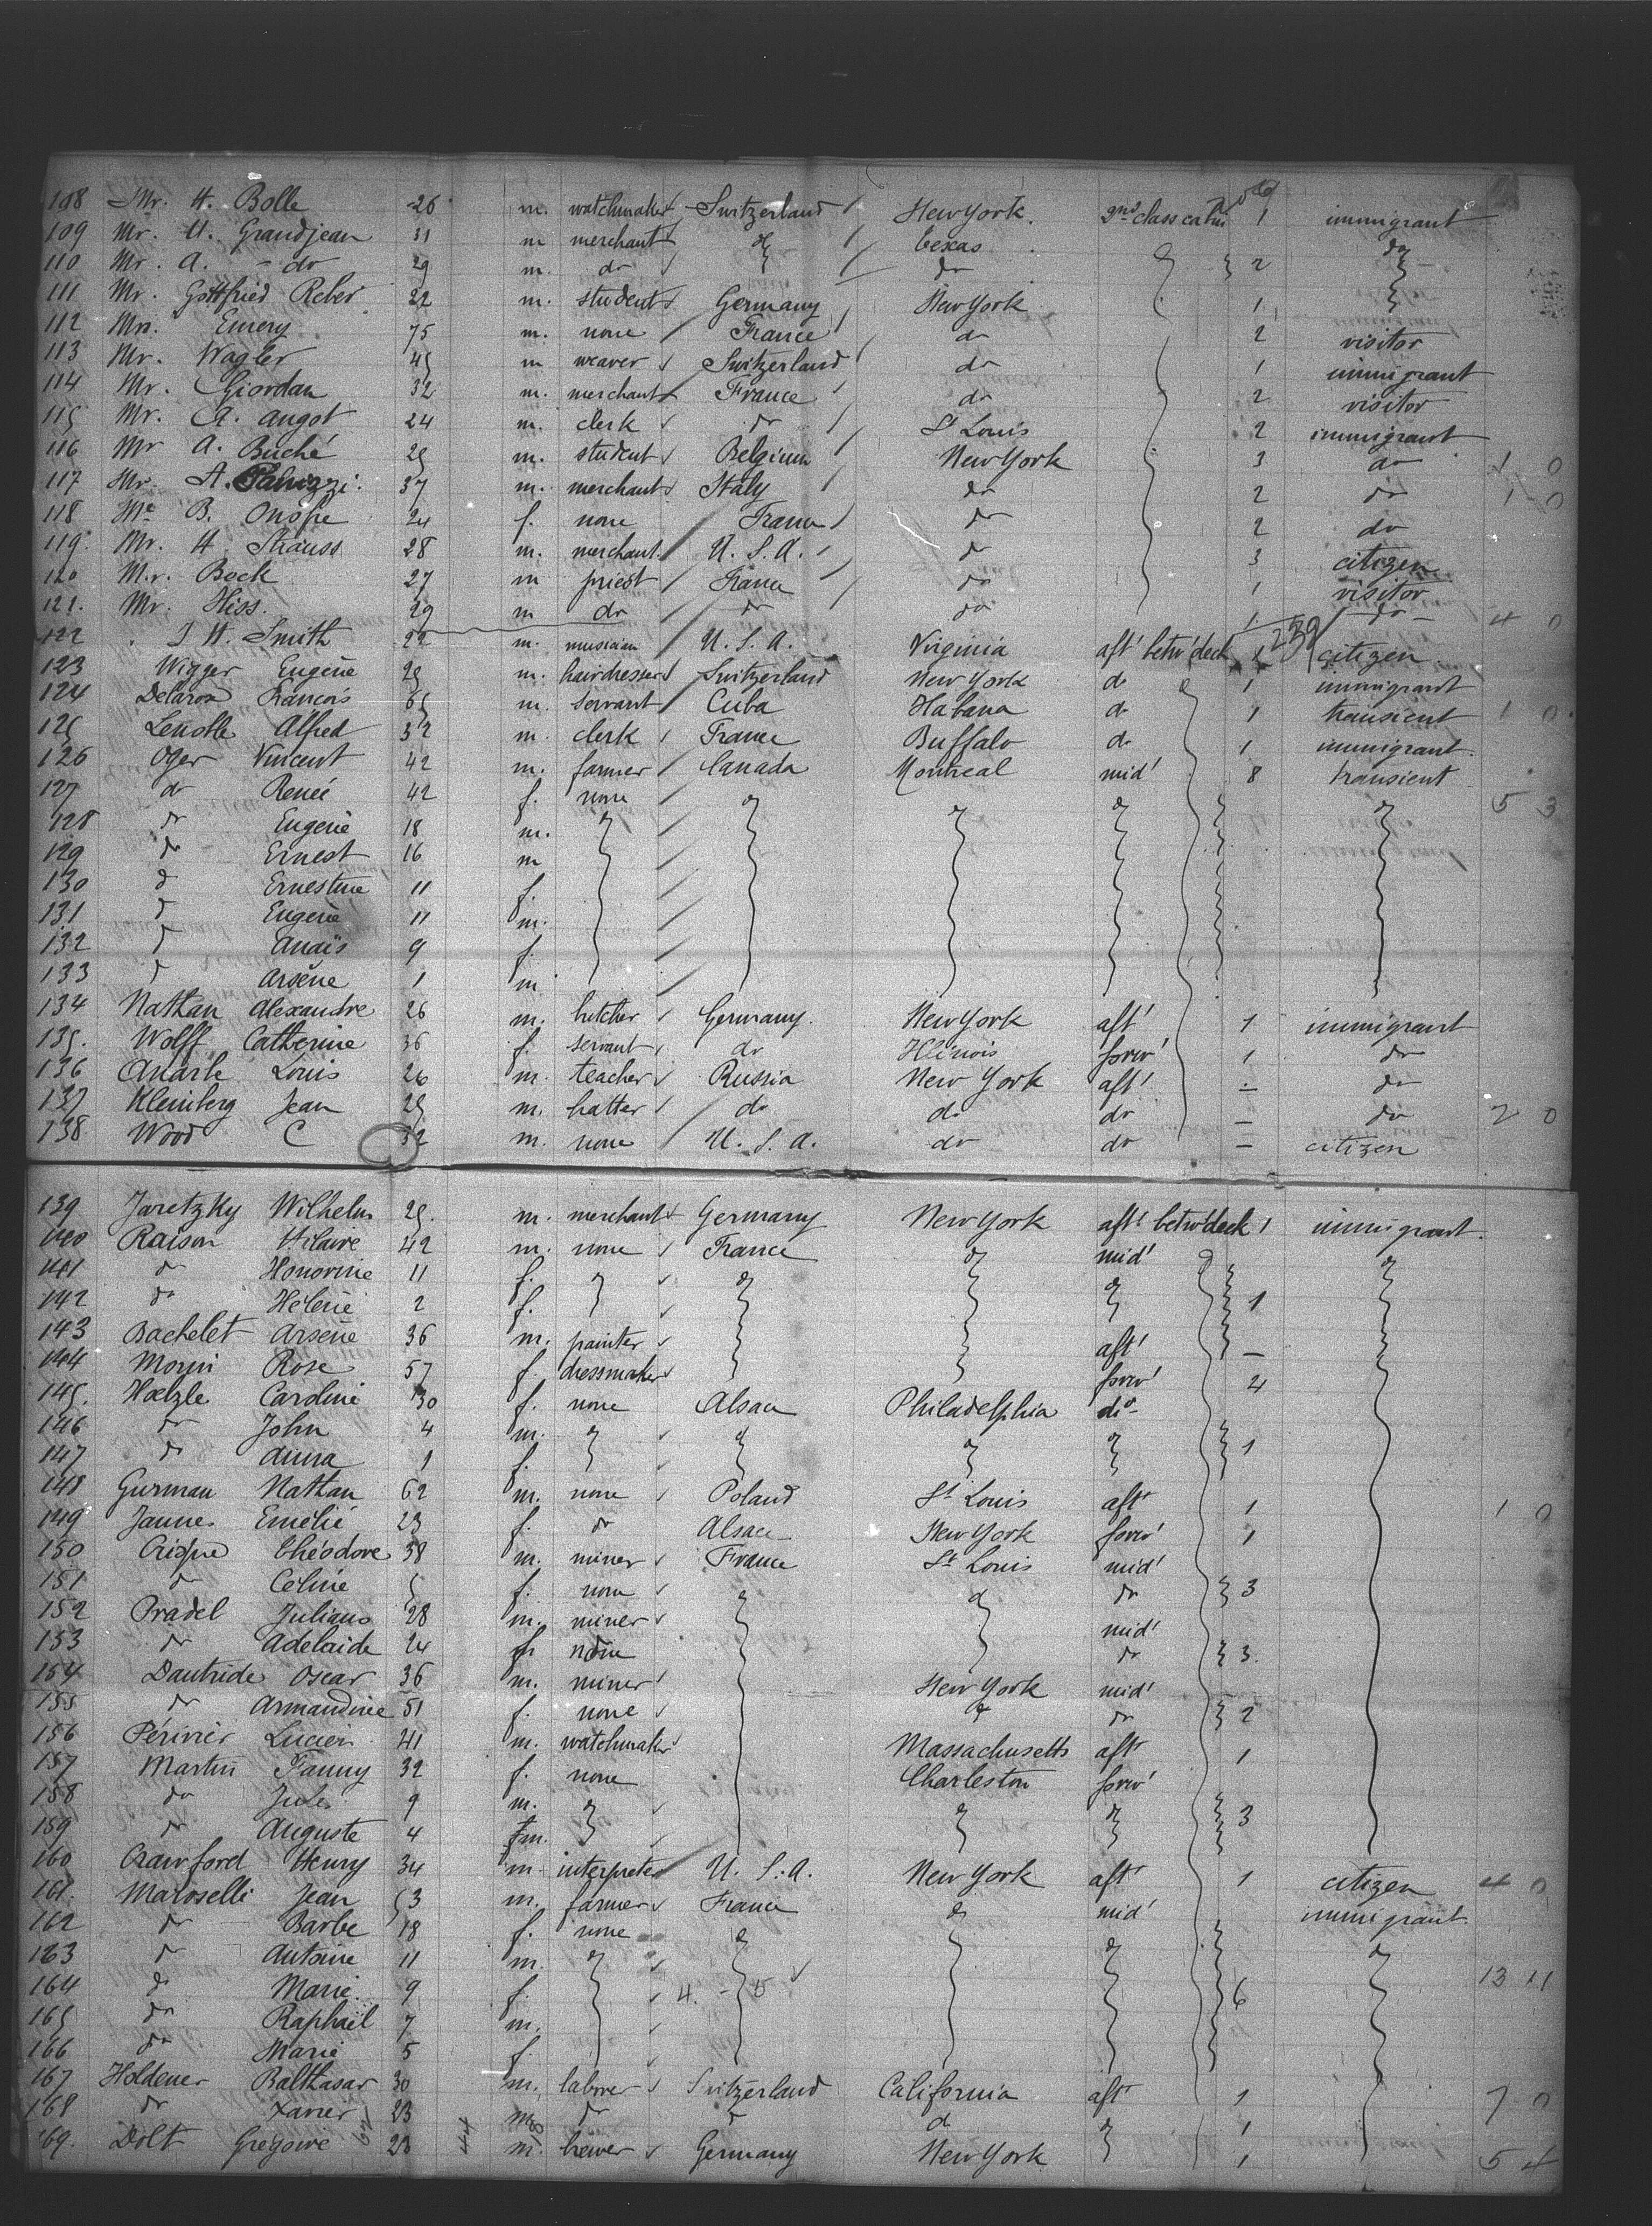 108 Mr. H. Bolle 26 m. watchmaker Switzerland New York. 2nd class cabin 1 immigrant
109 Mr. U. Grandjean 31 m merchant Texas do
110 Mr. A. - do 29 m. do do 2
111 Mr. Gottfried Reber 22 m. student Germany New York 1
112 Mr. Emery 75 m. none France do 2 visitor
113 Mr. Wagler 45 m weaver Switzerland do 1 immigrant
114 Mr. Giordan 32 m. merchant France do 2 visitor
115 Mr. A. Angot 24 m. clerk do St Louis 2 immigrant
116 Mr A. Buché 25 m. student Belgium New York 3 do 1 0
117 Mr. A. 37 m. merchant Italy do 2 do 1 0
118 Me B. Onofre 24 f. none France do 2 do
119 Mr. H Strauss 28 m. merchant U. S. A. do 3 citizen
120 Mr. Bock 27 m priest France do 1 visitor
121. Mr. Hiss. 29 m do do do 1 do 4 0
122 J H. Smith 22 m. musician U. S. A. Virginia aft' betw' deck 1 239 citizen
123 Wigger Eugène 25 m. hairdresser Switzerland New York do 1 immigrant
124 François 65 m. servant Cuba Habana do 1 transient 1 0
125 Lenoble Alfred 32 m. clerk France Buffalo do 1 immigrant.
126 Oger Vincent 42 m. farmer Canada Montreal mid' 8 transient
127 do Renée 42 f. none 5 3
128 do Eugène 18 m.
129 do Ernest 16 m
130 do Ernestine 11 f.
131 do Eugène 11 m.
132 do Anaïs 9 f.
133 do Arsène 1 m
134 Nathan Alexandre 26 m. butcher Germany. New York aft' 1 immigrant
135. Wolff Catherine 36 f. servant do Illinois forw' 1 do
136 Louis 26 m. teacher Russia New York aft' - do
137 Kleinberg Jean 25 m. hatter do do do - do 2 0
138 Wood C 32 m. none U. S. A. do do - citizen
139 Jaretzky Wilhelm 25. m. merchant Germany New York aft' betw' deck 1 immigrant.
140 Raison Hilaire 42 m. none France mid'
141 do Honorine 11 f.
142 do Hélène 2 f. 1
143 Bachelet Arsène 36 m. painter aft' -
144 Morin Rose 57 f. dressmaker forw' 4
145. Hoelzle Caroline 30 f. none Alsace Philadelphia do
146 do John 4 m.
147 do Anna 1 f. 1
148 Gurman Nathan 62 m. none Poland St Louis aft' 1 1 0
149 Jannes Emélie 23 f. do Alsace New York forw' 1
150 Théodore 38 m. miner France St Louis mid'
151 do Céline 5 f. none do 3
152 Pradel Juliano 28 m. miner mid'
153 do Adelaide 24 f none do 3.
154 Dautride Oscar 36 m. miner New York mid'
155 do Armandine 51 f. none do do 2
156 Périvier Lucien 41 m. watchmaker Massachusetts aft' 1
157 Martin Fanny 32 f. none Charleston forw'
158 do Jules 9 m.
159 do Auguste 4 m. 3
160 Crawford Henry 34 m interpreter U. S. A. New York aft' 1 citizen 4 0
161. Maroselli Jean 53 m. farmer France do mid' immigrant
162 do Barbe 18 f. none
163 do Antoine 11 m.
164 do Marie. 9 f. 6 13 11
165 do Raphaël 7 m.
166 do Marie 5 f.
167 Holdener Balthasar 30 m. laborer Switzerland California aft' 1 7 0
168 do Xavier 23 m do do do 1
169. Dolt Grégoire 28 m. brewer Germany New York 1 5 4